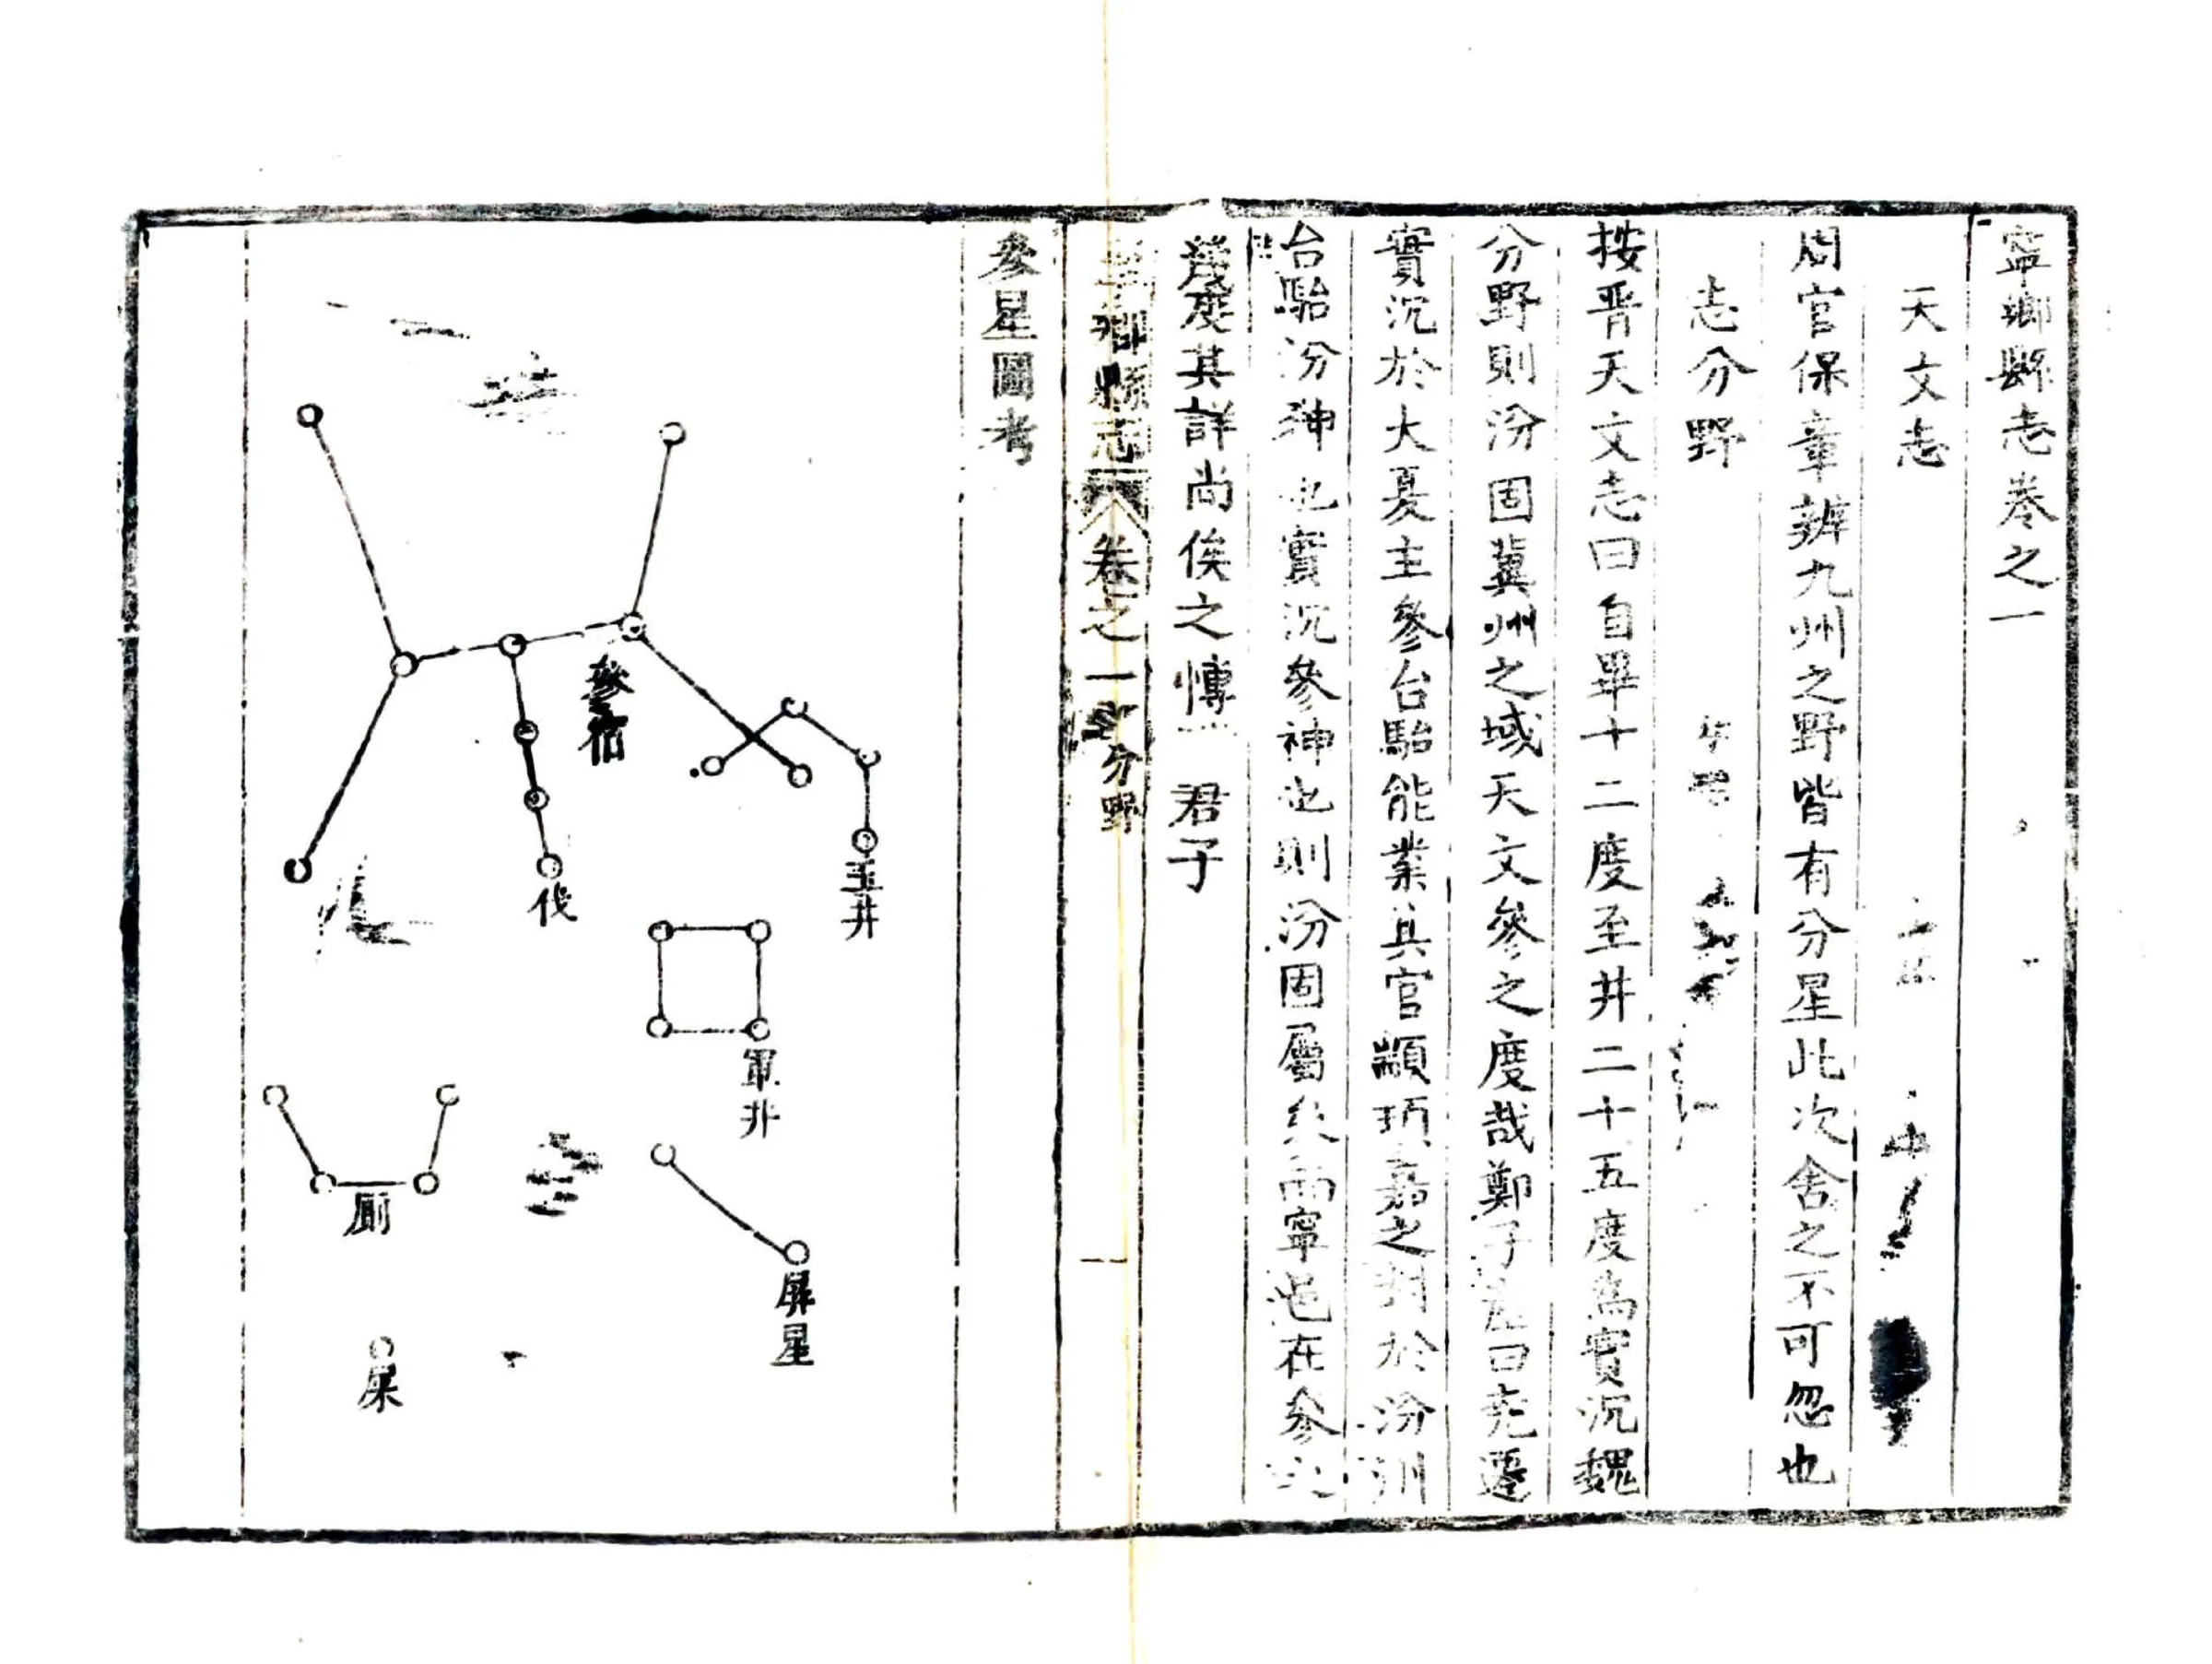 寧鄉縣志卷之一
天文志
周官保章辨九州之野皆有分星此次舍之不可忽也
志分野
按晋天文志曰自畢十二度至井二十五度為實沉魏
分野則汾固冀州之域天文參之度哉鄭子產曰堯遷
實沉於大夏主參台駘能業其官顓頊嘉之封於汾州
台駘汾神也實沉參神也則汾固屬矣而寧邑在參之
度其詳尚俟之博 君子
鄉縣志 卷之一 分野 一
參星圖考
參宿
伐
玉井
軍井
厠
屏星
屎